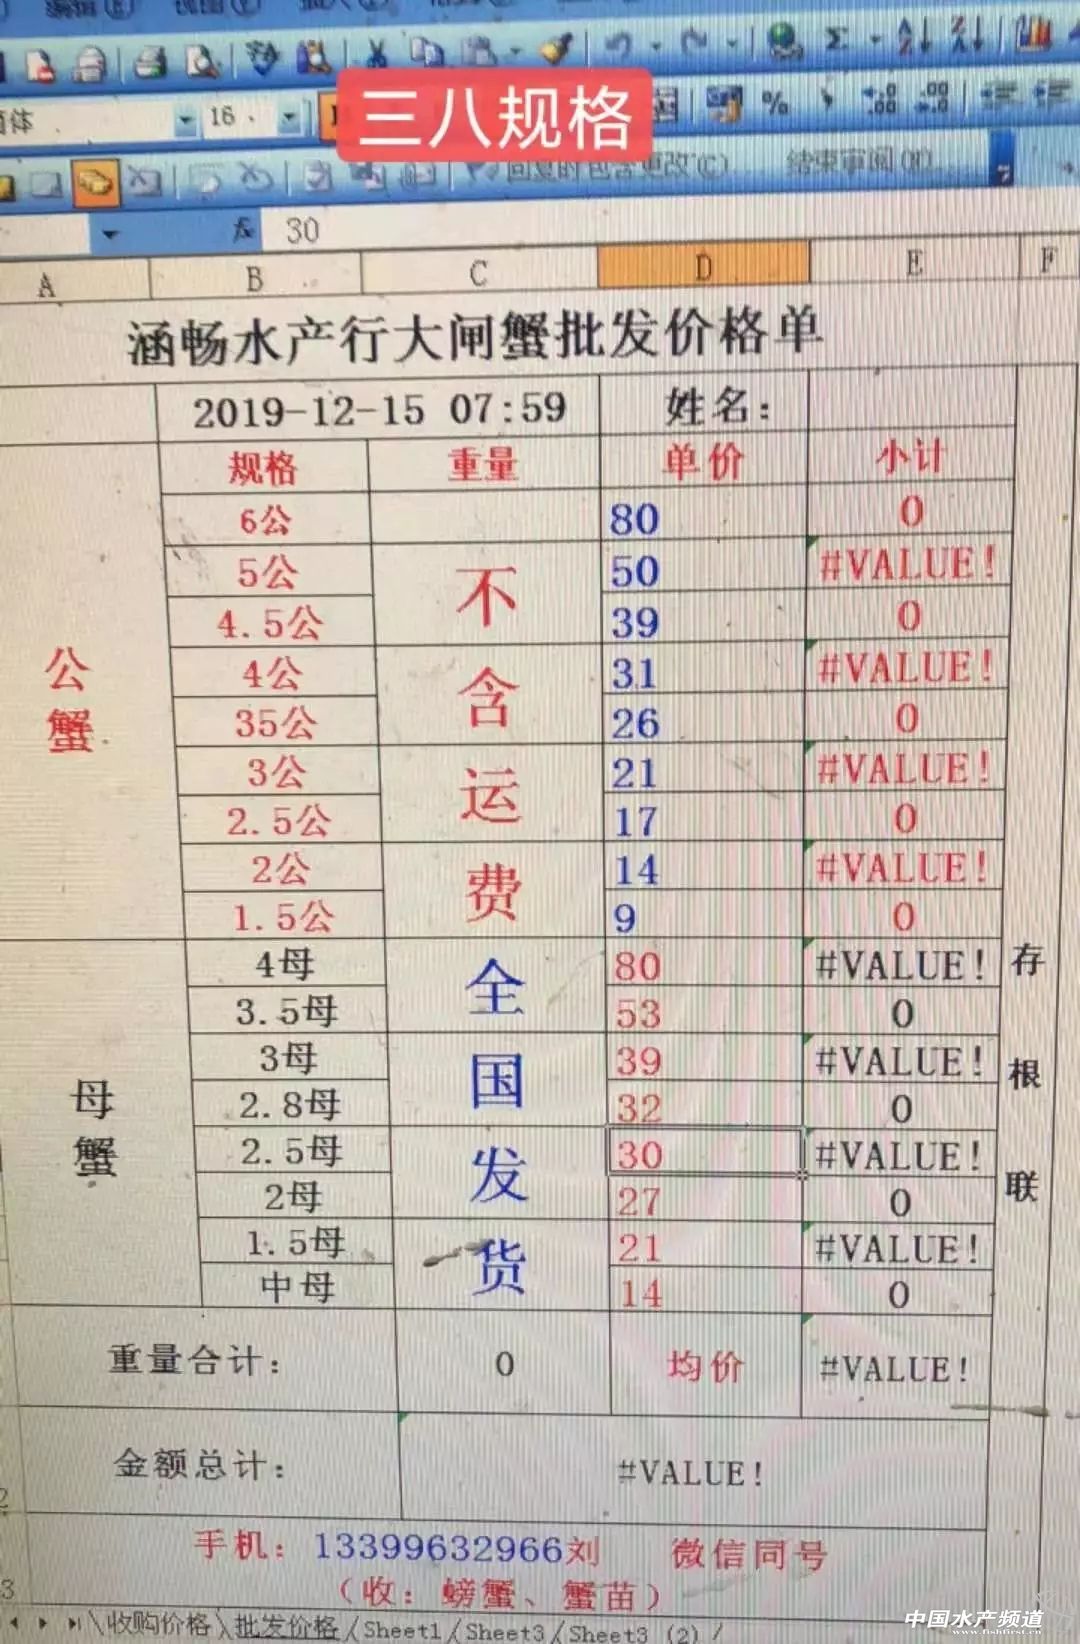 编辑(E)
三八规格
16
%
回复时包含更改(C)
结束审阅(N)
fx 30
A B C D E F
涵畅水产行大闸蟹批发价格单
2019-12-15 07:59 姓名:
规格 重量 单价 小计
公蟹
不含运费
6公 80 0
5公 50 #VALUE!
4.5公 39 0
4公 31 #VALUE!
35公 26 0
3公 21 #VALUE!
2.5公 17 0
2公 14 #VALUE!
1.5公 9 0
母蟹
全国发货
4母 80 #VALUE!
3.5母 53 0
3母 39 #VALUE!
2.8母 32 0
2.5母 30 #VALUE!
2母 27 0
1.5母 21 #VALUE!
中母 14 0
存根联
重量合计: 0 均价 #VALUE!
金额总计: #VALUE!
手机: 13399632966刘 微信同号
(收: 螃蟹、蟹苗)
收购价格 批发价格 Sheet1 Sheet3 Sheet3 (2)
中国水产频道
www.fishfirst.cn